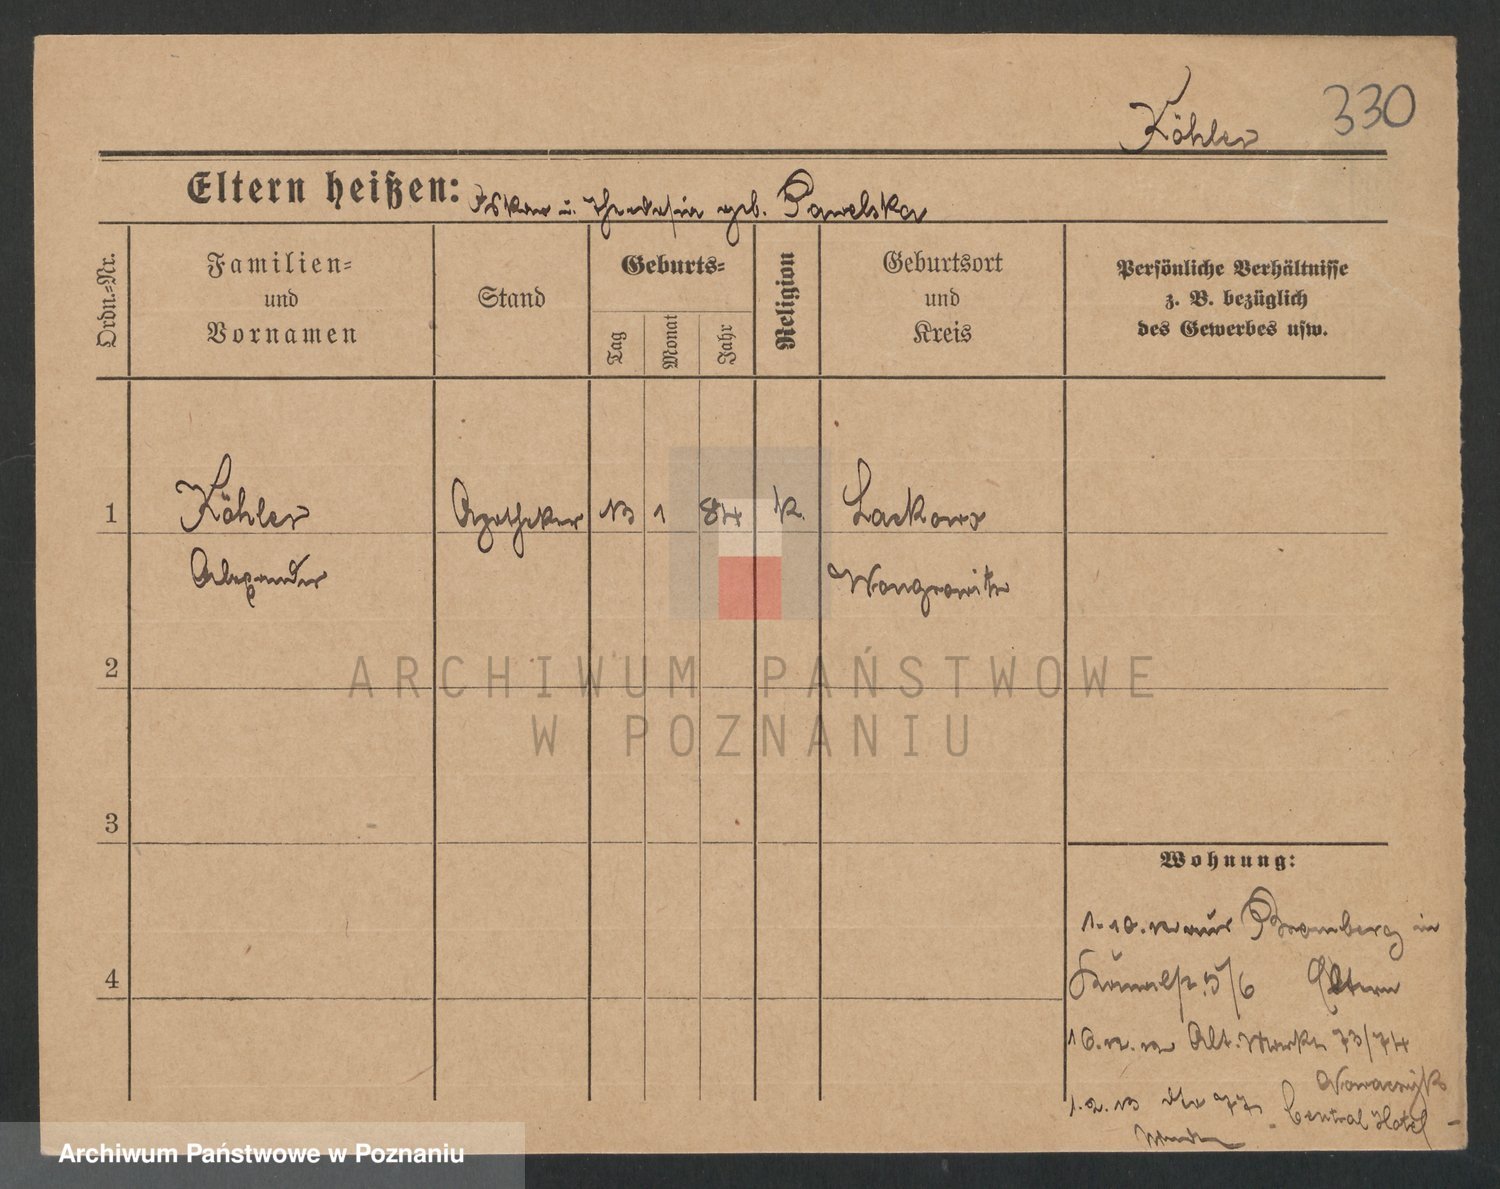 Köhler 330
Eltern heißen: Oskar u. Theodosia geb. Pawelska
Ordn.-Nr.
Familien-
und
Vornamen
Stand
Geburts-
Tag
Monat
Jahr
Religion
Geburtsort
und
Kreis
Persönliche Verhältnisse
z. B. bezüglich
des Gewerbes usw.
1 Köhler Apotheker 13 1 84 k. Lackowo
Alexander Wongrowitz
2
ARCHIWUM PAŃSTWOWE
W POZNANIU
3
Wohnung:
1.10.12 aus Bromberg in
Kanalstr. 5/6 Eltern
4
10.12.12 Alt. Markt 73/74
Nowaczyk
1.2.13 Central Hotel
Archiwum Państwowe w Poznaniu